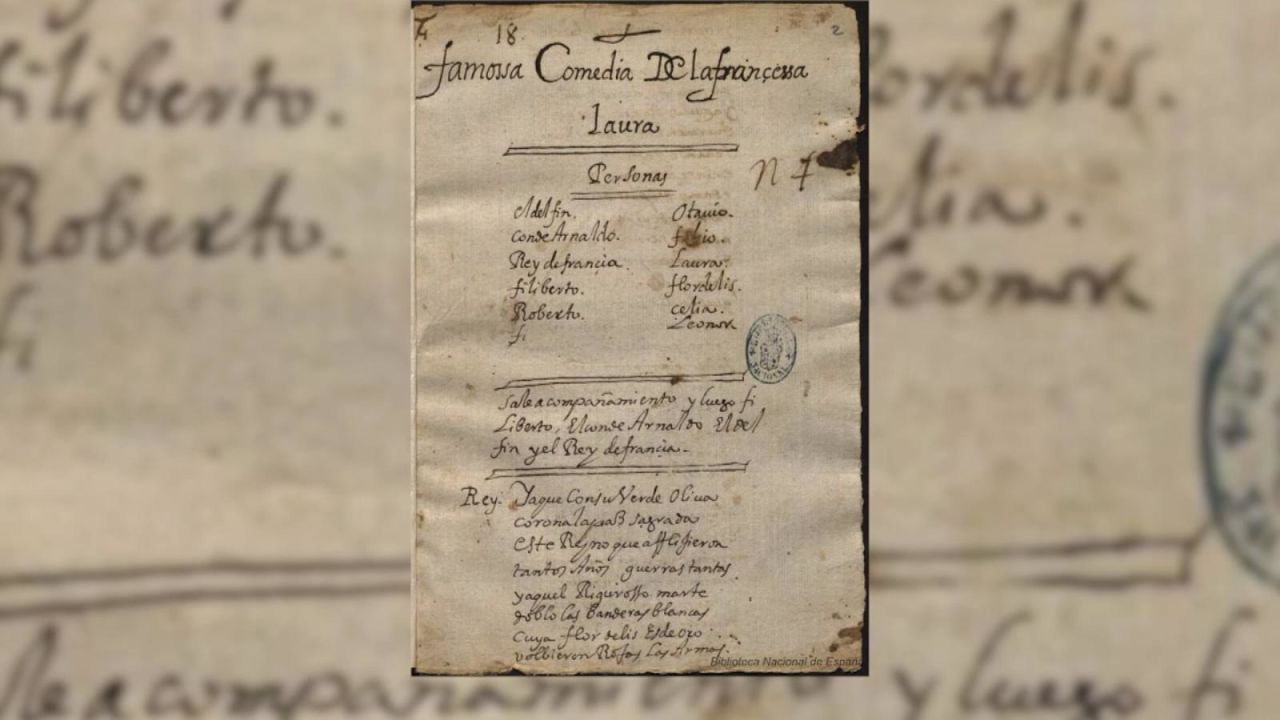 18 2
famossa Comedia De lafrançessa
laura
Personas
N
el delfin. Otauio.
conde Arnaldo. fabio.
Rey de francia. Laura.
filiberto. flordelis.
Roberto. celia.
fi Leonor
sale acompañamiento y luego fi
Liberto, El conde Arnaldo El del
fin y el Rey de francia.
Rey. Ya que Con su Verde Oliua
corona la paz sagrada
este Reyno que afflixieron
tantos Años guerras tantas
ya que el Rigurosso marte
doblo las Banderas blancas
cuya flor de lis Es de oro
volbieron Rojas Las Armas.
Biblioteca Nacional de España